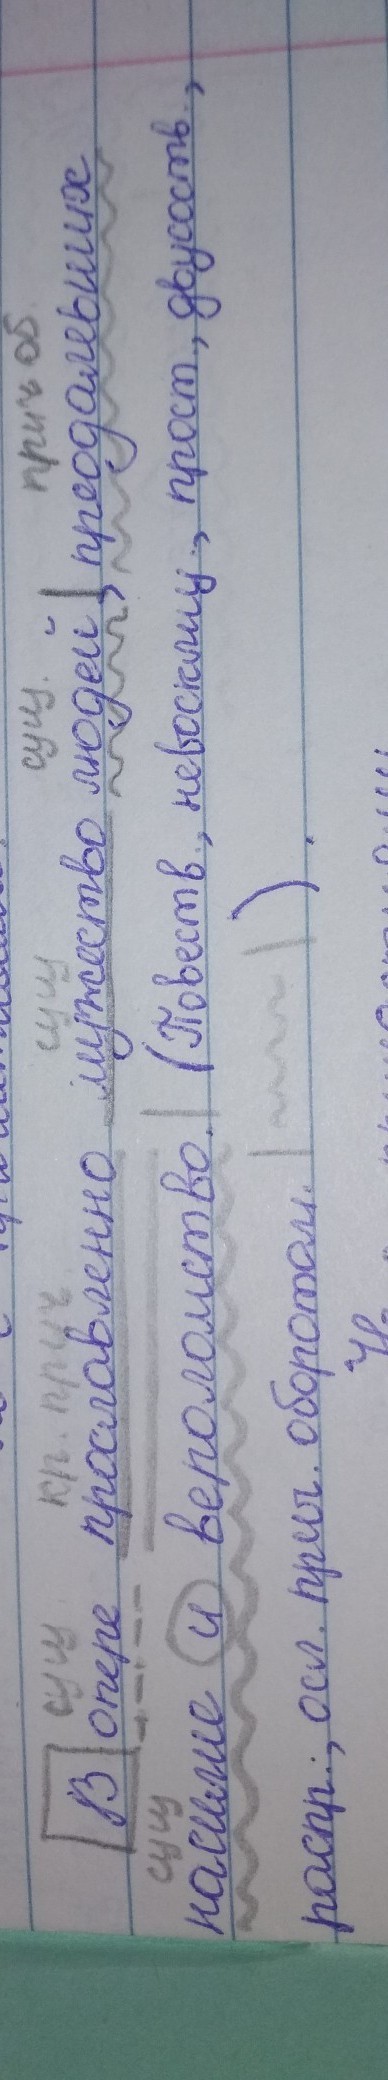 сущ. кр. прич. сущ сущ. прич об.
В опере прославленно мужество людей, преодалевших
сущ
насилие и вероломство. (Повеств., невосклиц., прост., двусоств.,
распр., осл. прич. оборотом. | |).